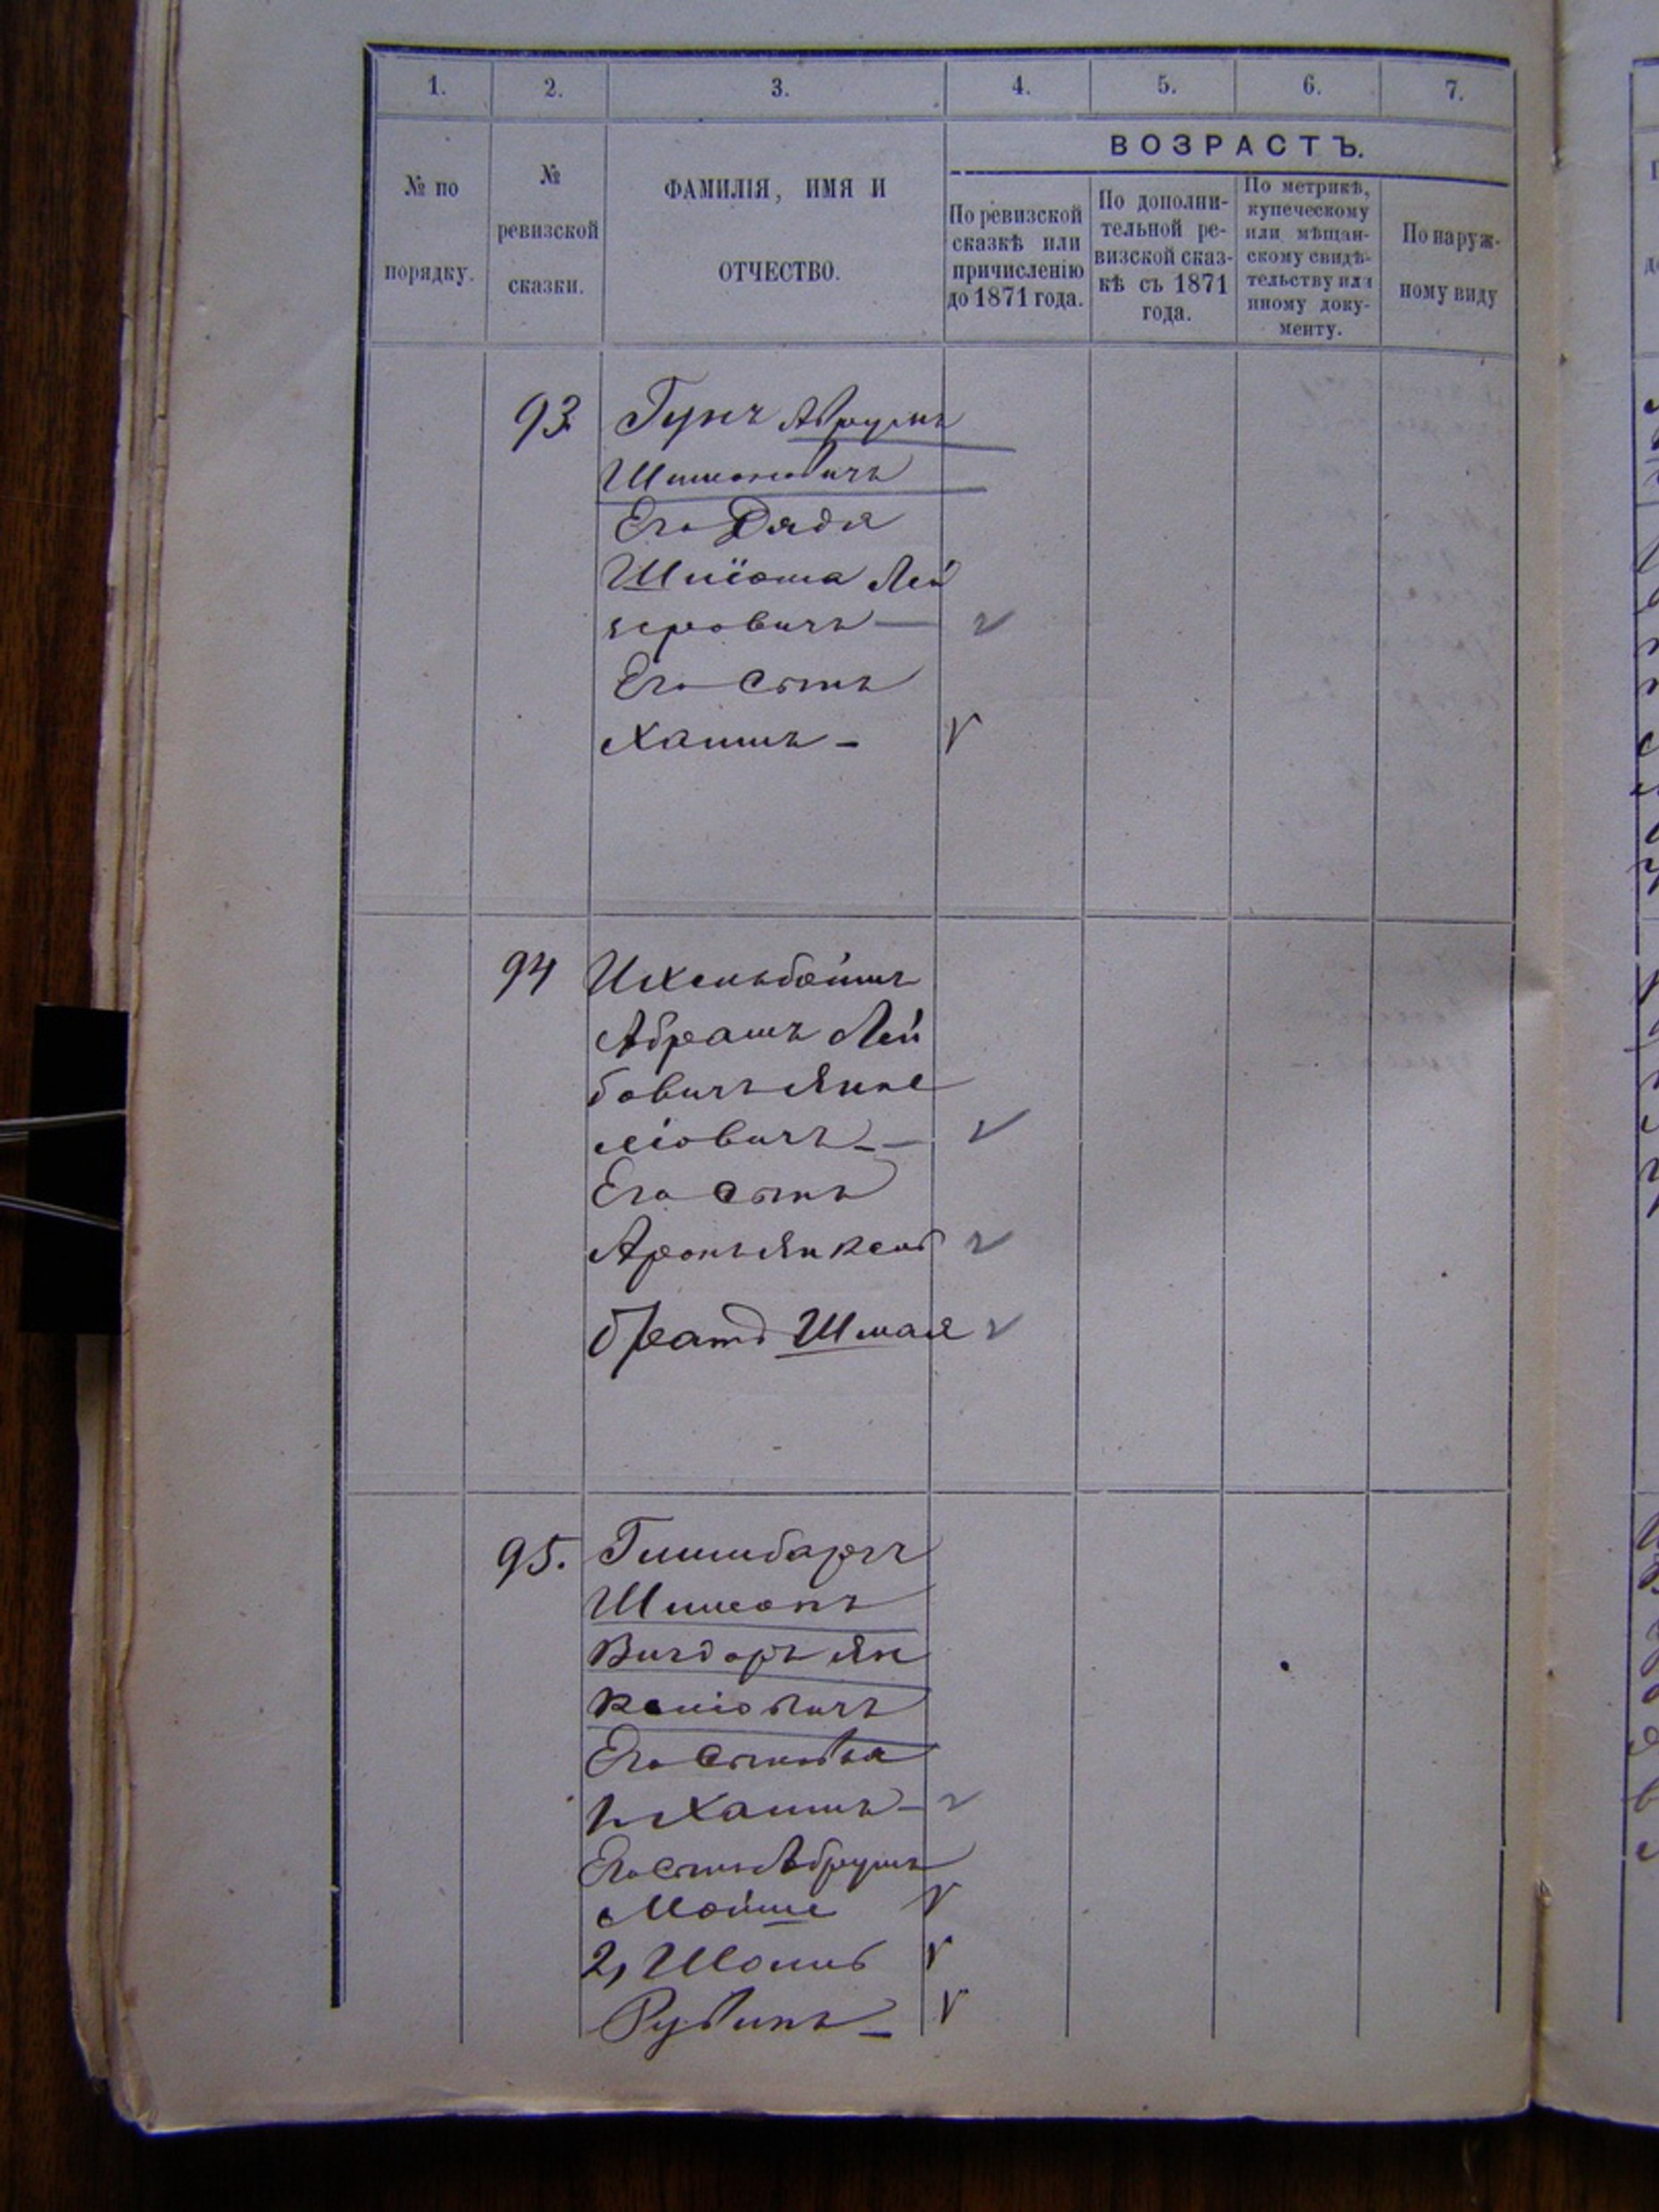 1. 2. 3. 4. 5. 6. 7.
№ по порядку.
№ ревизской сказки.
ФАМИЛІЯ, ИМЯ И ОТЧЕСТВО.
ВОЗРАСТЪ.
По ревизской
сказкѣ или
причисленію
до 1871 года.
По дополни-
тельной ре-
визской сказ-
кѣ съ 1871
года.
По метрикѣ,
купеческому
или мѣщан-
скому свидѣ-
тельству или
иному доку-
менту.
По наруж-
ному виду
93. Абрумъ
Шимоновичъ
Его Дядя
Лей
зеровичъ
Его Сынъ
Хаимъ
94
Абрамъ Лей
бовичъ Янке
леовичъ
Его Сынъ
Аронъ Янкель
братъ Шмая
95.
Шимонъ
Вигдоръ Ян
келіовичъ
Его Сыновья
1, Хаимъ
Его Сынъ Абрумъ
Мойше
2,
Рувинъ